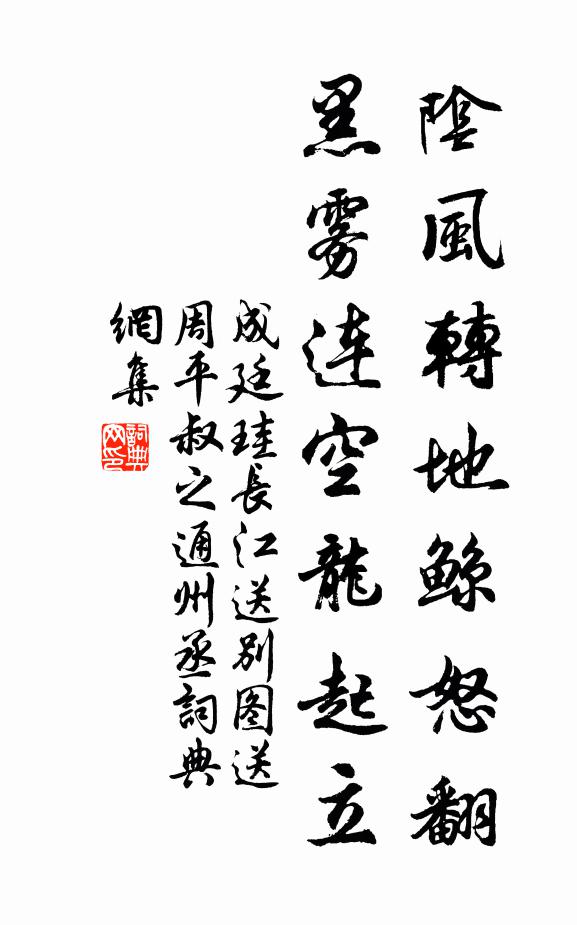 陰風轉地鯨怒翻
黑雾連空龍起立
成廷珪長江送別图送
周平叔之通州丞詞典
網集
詞典
网印